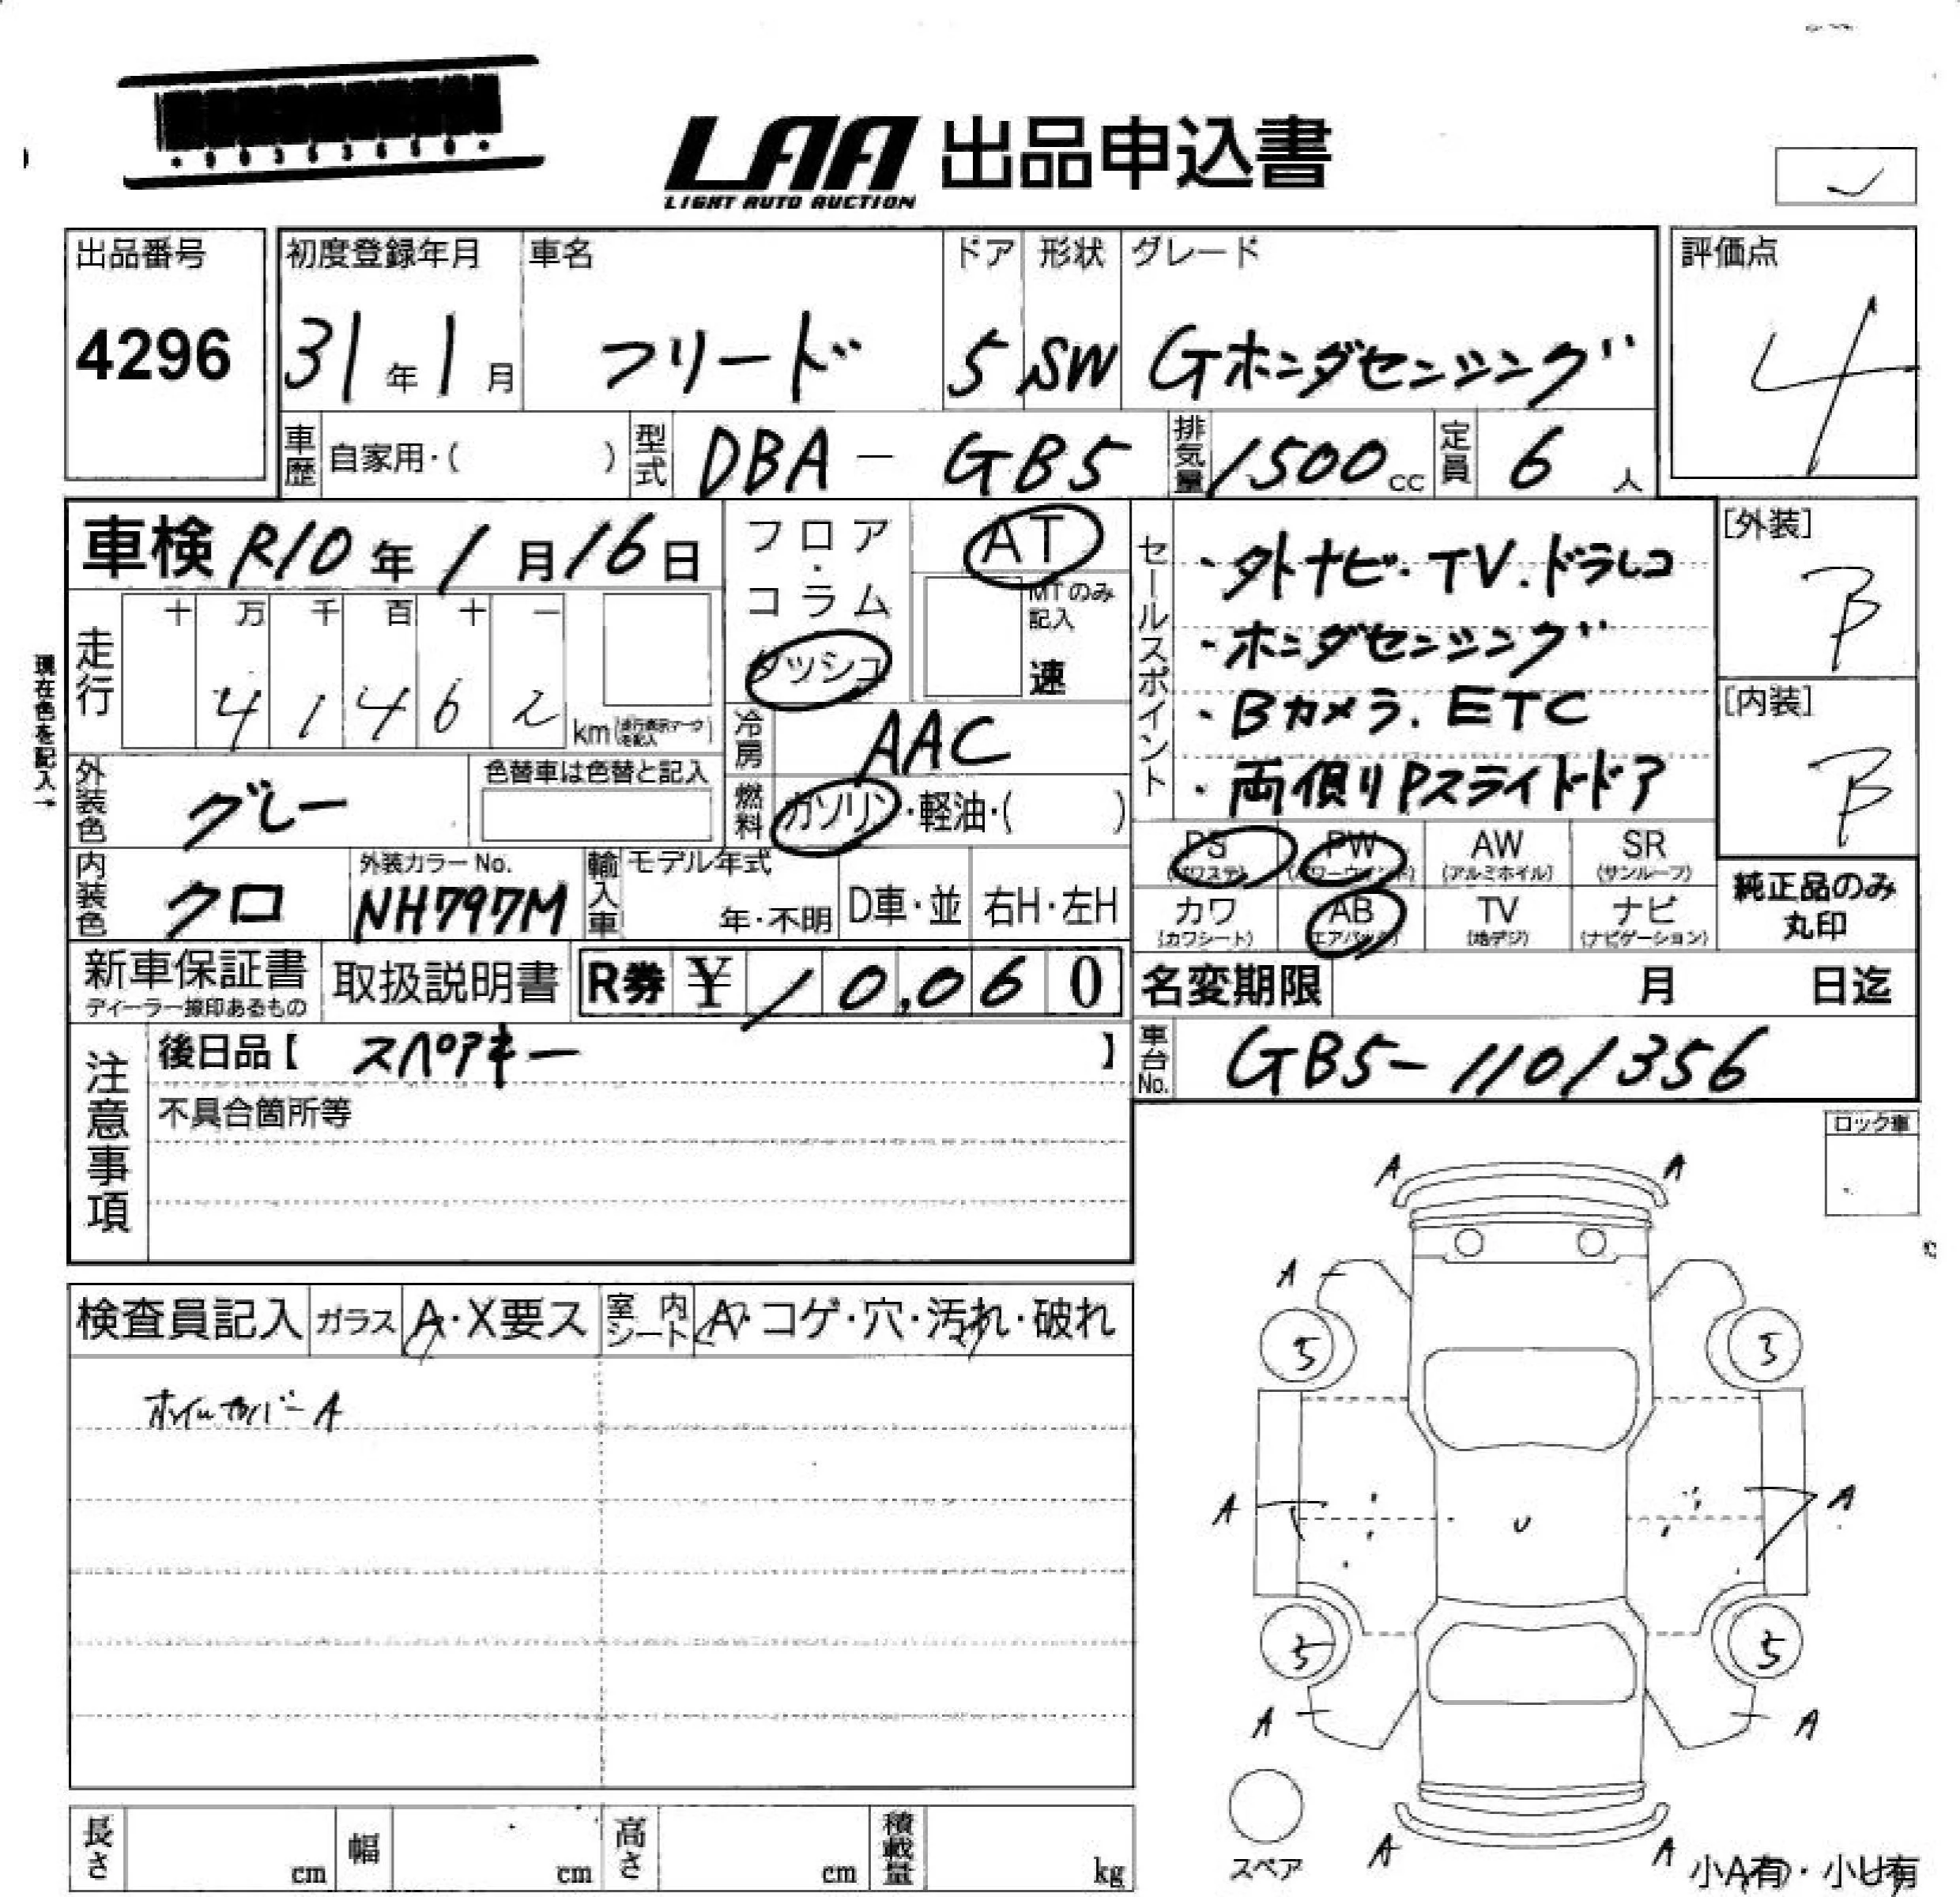 LAA 出品申込書
LIGHT AUTO AUCTION
出品番号 初度登録年月 車名 ドア 形状 グレード 評価点
4296 31年1月 フリード 5 SW Gホンダセンシング 4
車歴 自家用・( ) 型式 DBA－GB5 排気量 1500cc 定員 6人
車検 R10年1月16日 フロア・コラム ダッシュ AT
MTのみ記入 速
セールスポイント
・外ナビ・TV.ドラレコ
・ホンダセンシング
・Bカメラ.ETC
・両側Pスライドドア
[外装] B
[内装] B
現在色を記入→
走行 十 万 千 百 十 一
4 1 4 6 2 km (走行表示マークを記入)
冷房 AAC
外装色 グレー 色替車は色替と記入
燃料 ガソリン・軽油・( )
PS (パワステ) PW (パワーウインド) AW (アルミホイル) SR (サンルーフ)
内装色 クロ 外装カラーNo. NH797M 輸入車 モデル年式 年・不明 D車・並 右H・左H
カワ (カワシート) AB (エアバック) TV (地デジ) ナビ (ナビゲーション)
純正品のみ丸印
新車保証書 ディーラー捺印あるもの 取扱説明書 R券 ¥ 10,060
名変期限 月 日迄
注意事項
後日品【 スペアキー 】
車台No. GB5-1101356
不具合箇所等
ロック車
検査員記入 ガラス A・X要ス 室内シート A・コゲ・穴・汚れ・破れ
ホイルカバーA
A A
A
5 5
A A
U
5 5
A A
スペア
A A
小A有・小U有
長さ cm 幅 cm 高さ cm 積載量 kg